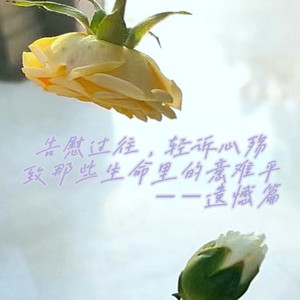 告慰过往，轻诉心殇
致那些生命里的意难平
——遗憾篇